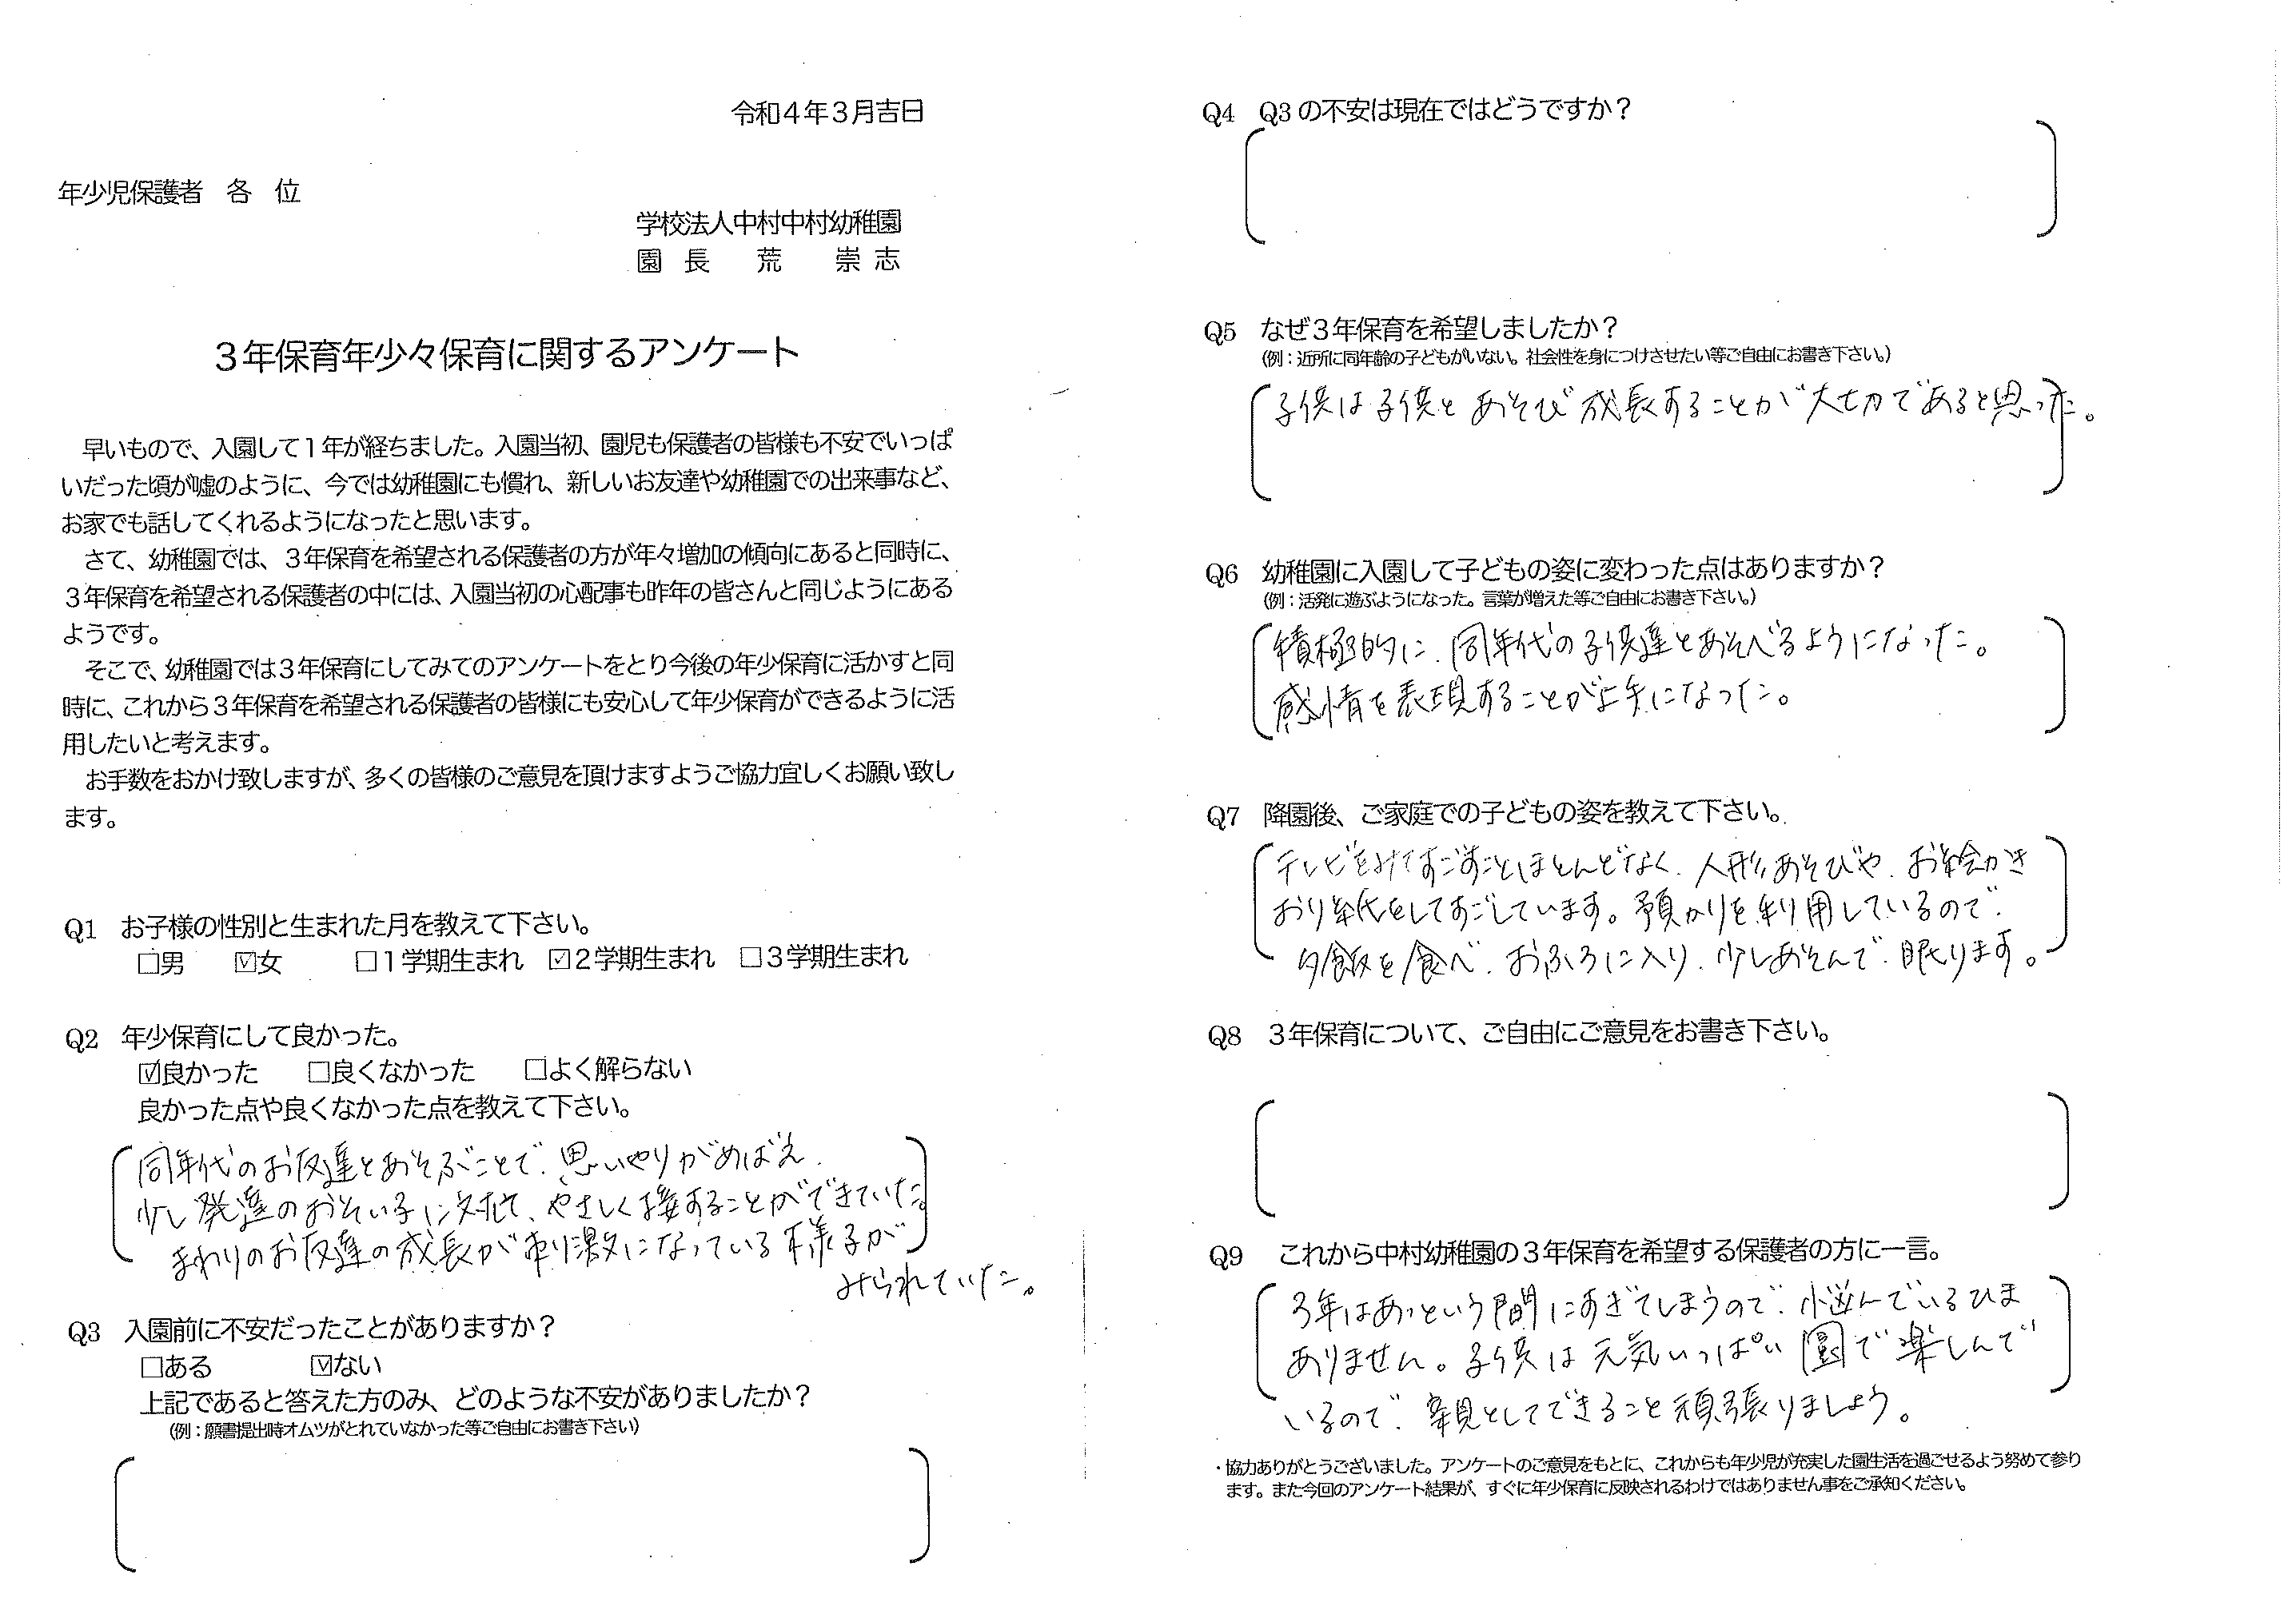 令和4年3月吉日
年少児保護者　各　位
学校法人中村中村幼稚園
園　長　　荒　　崇　志
3年保育年少々保育に関するアンケート
早いもので、入園して1年が経ちました。入園当初、園児も保護者の皆様も不安でいっぱ
いだった頃が嘘のように、今では幼稚園にも慣れ、新しいお友達や幼稚園での出来事など、
お家でも話してくれるようになったと思います。
さて、幼稚園では、3年保育を希望される保護者の方が年々増加の傾向にあると同時に、
3年保育を希望される保護者の中には、入園当初の心配事も昨年の皆さんと同じようにある
ようです。
そこで、幼稚園では3年保育にしてみてのアンケートをとり今後の年少保育に活かすと同
時に、これから3年保育を希望される保護者の皆様にも安心して年少保育ができるように活
用したいと考えます。
お手数をおかけ致しますが、多くの皆様のご意見を頂けますようご協力宜しくお願い致し
ます。
Q1　お子様の性別と生まれた月を教えて下さい。
□男　☑女　□1学期生まれ　☑2学期生まれ　□3学期生まれ
Q2　年少保育にして良かった。
☑良かった　□良くなかった　□よく解らない
良かった点や良くなかった点を教えて下さい。
同年代のお友達とあそぶことで、思いやりがめばえ、
少し発達のおそい子に対して、やさしく接することができていた。
まわりのお友達の成長が刺激になっている様子が
みられていた。
Q3　入園前に不安だったことがありますか？
□ある　☑ない
上記であると答えた方のみ、どのような不安がありましたか？
(例：願書提出時オムツがとれていなかった等ご自由にお書き下さい)
Q4　Q3の不安は現在ではどうですか？
Q5　なぜ3年保育を希望しましたか？
(例：近所に同年齢の子どもがいない。社会性を身につけさせたい等ご自由にお書き下さい。)
子供は子供とあそび成長することが大切であると思った。
Q6　幼稚園に入園して子どもの姿に変わった点はありますか？
(例：活発に遊ぶようになった。言葉が増えた等ご自由にお書き下さい。)
積極的に、同年代の子供達とあそべるようになった。
感情を表現することが上手になった。
Q7　降園後、ご家庭での子どもの姿を教えて下さい。
テレビをみてすごすことほとんどなく、人形あそびや、お絵かき
おり紙をしてすごしています。預かりを利用しているので、
夕飯を食べ、おふろに入り、少しあそんで、眠ります。
Q8　3年保育について、ご自由にご意見をお書き下さい。
Q9　これから中村幼稚園の3年保育を希望する保護者の方に一言。
3年はあっという間にすぎてしまうので、悩んでいるひま
ありません。子供は元気いっぱい園で楽しんで
いるので、親としてできること頑張りましょう。
・協力ありがとうございました。アンケートのご意見をもとに、これからも年少児が充実した園生活を過ごせるよう努めて参り
ます。また今回のアンケート結果が、すぐに年少保育に反映されるわけではありません事をご承知ください。